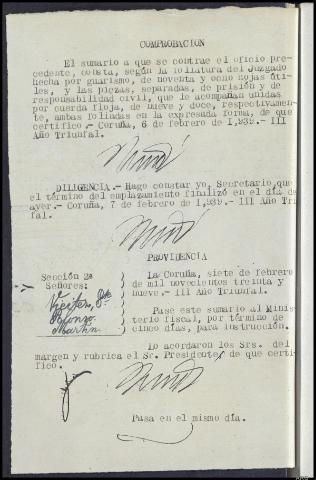 COMPROBACION
El sumario a que se contrae el oficio pre-
cedente, consta, según la foliatura del Juzgado
hecha por guarismo, de noventa y ocho hojas úti-
les, y las piezas, separadas, de prisión y de
responsabilidad civil, que le acompañan unidas
por cuerda floja, de nueve y doce, respectivamen-
te, ambas foliadas en la expresada forma, de que
certifico.- Coruña, 6 de febrero de 1,939.- III
Año Triunfal.
DILIGENCIA.- Hago constar yo, Secretario, que
el término del emplazamiento finalizó en el día de
ayer.- Coruña, 7 de febrero de 1,939.- III Año Triun
fal.
PROVIDENCIA
Sección 2ª
Señores:
Vieites, Pte
Alonso
Martín
La Coruña, siete de febrero
de mil novecientos treinta y
nueve.- III Año Triunfal.
Pase este sumario al Minis-
terio fiscal, por término de
cinco días, para instrucción.
Lo acordaron los Srs. del
margen y rubrica el Sr. Presidente, de que certi-
fico.
Pasa en el mismo día.